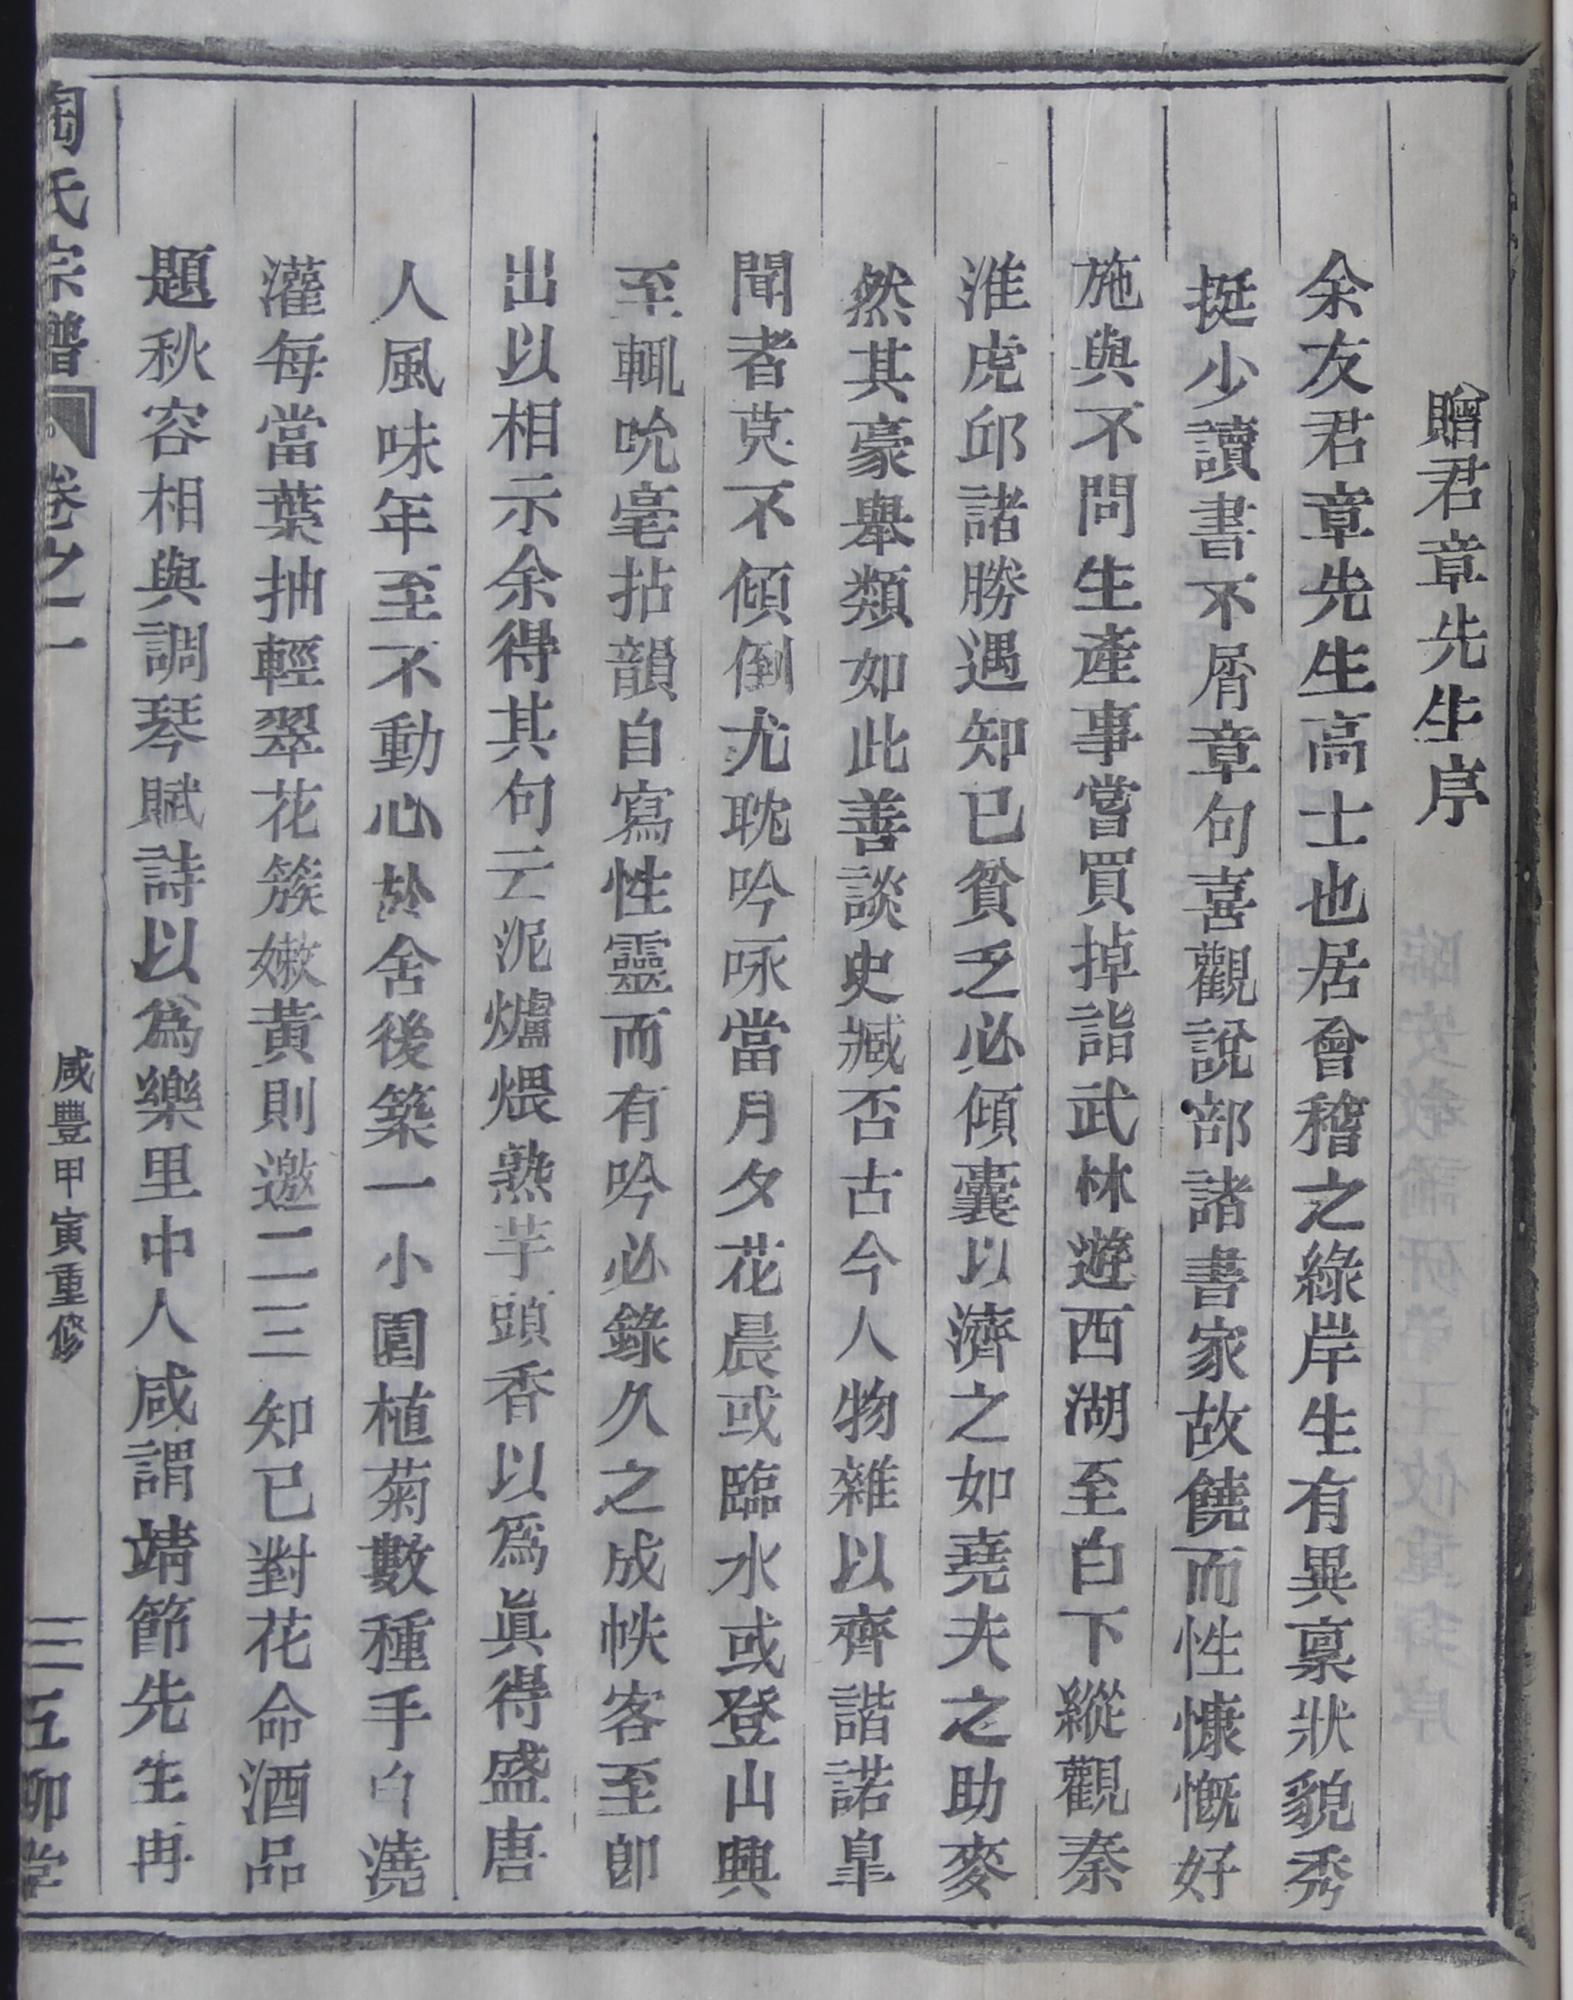 贈君章先生序
余友君章先生高士也居會稽之綠岸生有異稟狀貌秀
挺少讀書不屑章句喜觀說部諸書家故饒而性慷慨好
施與不問生產事嘗買掉詣武林遊西湖至白下縱觀秦
淮虎邱諸勝遇知已貧乏必傾囊以濟之如堯夫之助麥
然其豪舉類如此善談史臧否古今人物雜以齊諧諾皐
聞者莫不傾倒尤耽吟咏當月夕花晨或臨水或登山興
至輒吮毫拈韻自寫性靈而有吟必錄久之成帙客至卽
出以相示余得其句云泥爐煨熟芋頭香以爲眞得盛唐
人風味年至不動心於舍後築一小園植菊數種手自澆
灌每當葉抽輕翠花簇嫩黃則邀二三知已對花命酒品
題秋容相與調琴賦詩以爲樂里中人咸謂靖節先生冉
陶氏宗譜 卷之一 咸豐甲寅重修 三 五柳堂